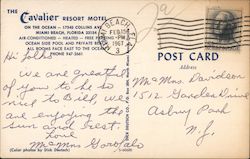 THE
Cavalier RESORT MOTEL
ON THE OCEAN - 17545 COLLINS AVE
MIAMI BEACH, FLORIDA 33154
AIR-CONDITIONED - HEATED - FREE PARKING
OCEAN SIDE POOL AND PRIVATE BEACH
ALL ROOMS FACE EAST TO THE OCEAN
PHONE 947-3661
MIAMI BEACH, FLA.
FEB 15
PM
1967
POST CARD
Address
Hi Folks
We are greatful
of you to be so
nice to Bill, we
are enjoying the
sun and rest
and
Mr Mrs Garofalo
Mr Mrs Davidson
1512 Garden Drive
Asbury Park
N.J.
(Color photos by Dick Deutsch)